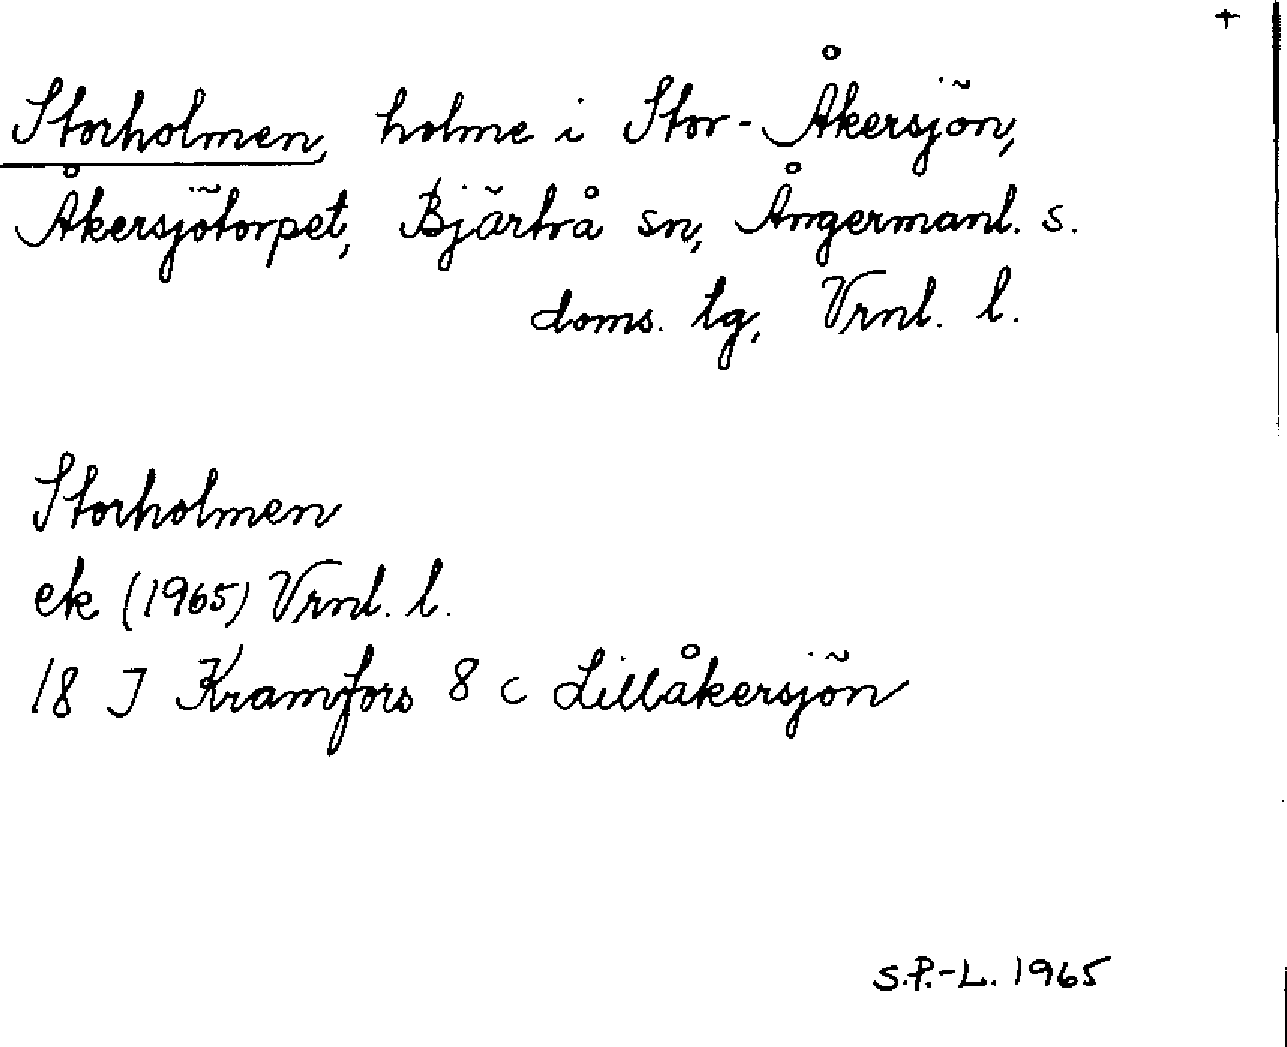 +
Storholmen, holme i Stor-Åkersjön,
Åkersjötorpet, Bjärtrå sn, Ångermanl. s.
doms. lg, Vrnl. l.
Storholmen
ek (1965) Vrnl. l.
18 J Kramfors 8 c Lillåkersjön
S.P.-L. 1965